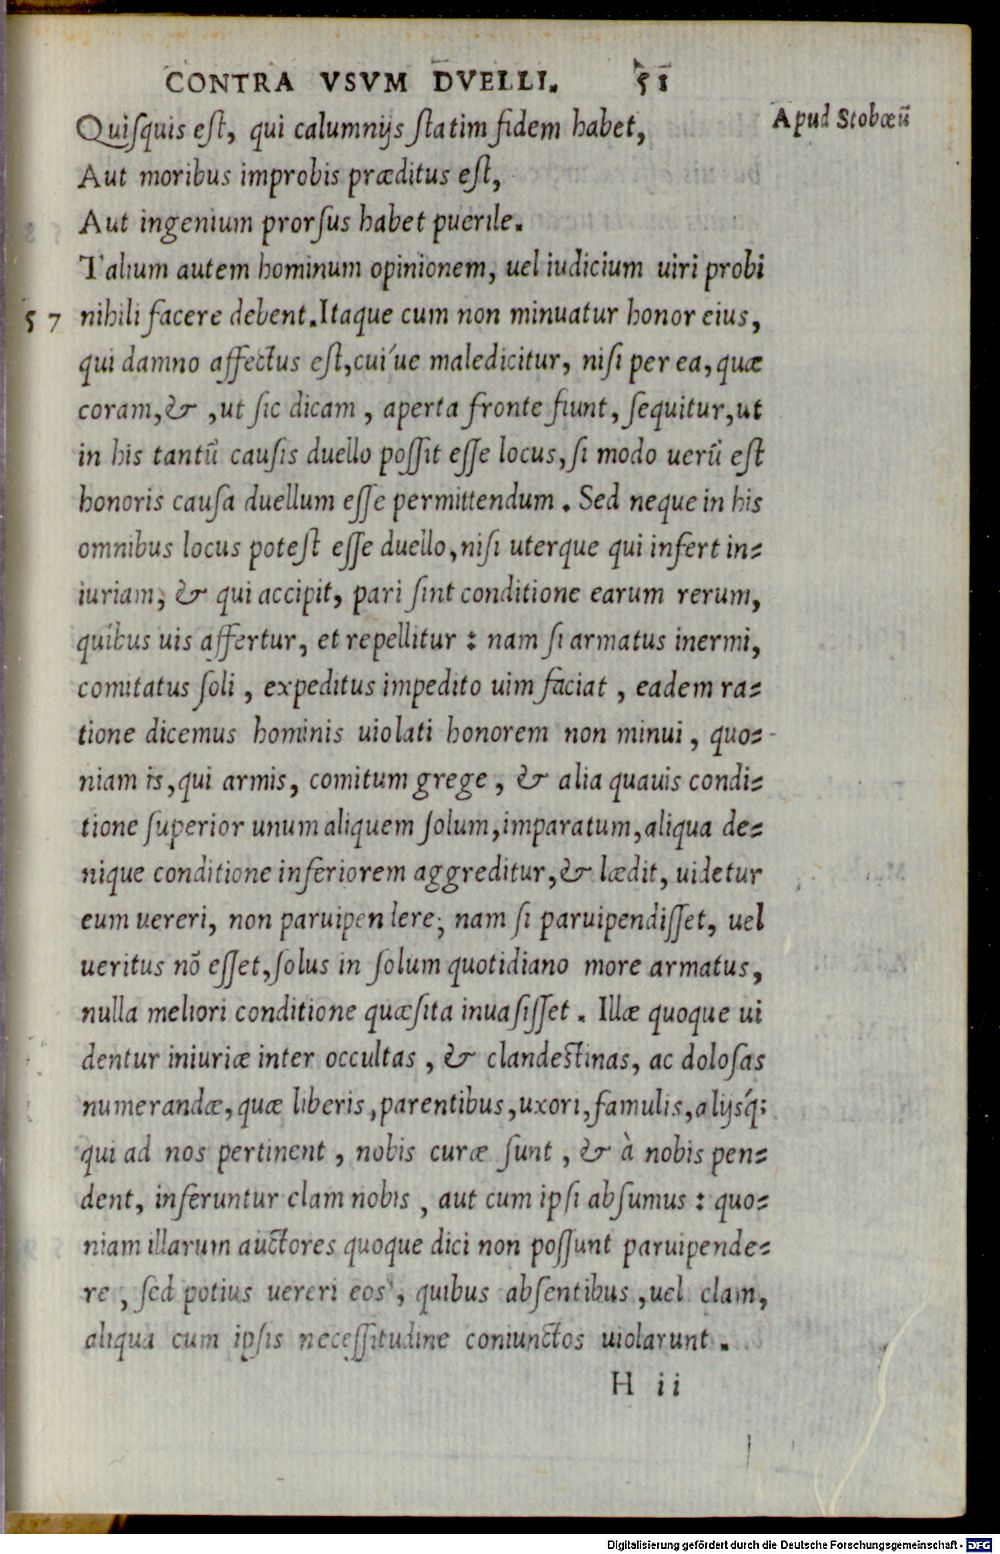 CONTRA VSVM DVELLI. 51
Quiſquis eſt, qui calumnijs ſtatim fidem habet,
Apud Stobæū
Aut moribus improbis præditus eſt,
Aut ingenium prorſus habet puerile.
Talium autem hominum opinionem, uel iudicium uiri probi
57 nihili facere debent. Itaque cum non minuatur honor eius,
qui damno affectus eſt, cui´ue maledicitur, niſi per ea, quæ
coram, & , ut ſic dicam , aperta fronte fiunt, ſequitur, ut
in his tantū cauſis duello poſſit eſſe locus, ſi modo uerū eſt
honoris cauſa duellum eſſe permittendum . Sed neque in his
omnibus locus poteſt eſſe duello, niſi uterque qui infert in=
iuriam, & qui accipit, pari ſint conditione earum rerum,
quibus uis affertur, et repellitur : nam ſi armatus inermi,
comitatus ſoli , expeditus impedito uim faciat , eadem ra=
tione dicemus hominis uiolati honorem non minui , quo=
niam is, qui armis, comitum grege , & alia quauis condi=
tione ſuperior unum aliquem ſolum, imparatum, aliqua de=
nique conditione inferiorem aggreditur, & lædit, uidetur
eum uereri, non paruipendere; nam ſi paruipendiſſet, uel
ueritus nō eſſet, ſolus in ſolum quotidiano more armatus,
nulla meliori conditione quæſita inuaſiſſet . Illæ quoque ui
dentur iniuriæ inter occultas , & clandeſtinas, ac doloſas
numerandæ, quæ liberis, parentibus, uxori, famulis, alijsq́;
qui ad nos pertinent , nobis curæ ſunt , & à nobis pen=
dent, inferuntur clam nobis , aut cum ipſi abſumus : quo=
niam illarum auctores quoque dici non poſſunt paruipende=
re , ſed potius uereri eos , quibus abſentibus , uel clam,
aliqua cum ipſis neceſſitudine coniunctos uiolarunt .
H ii
Digitalisierung gefördert durch die Deutsche Forschungsgemeinschaft - DFG